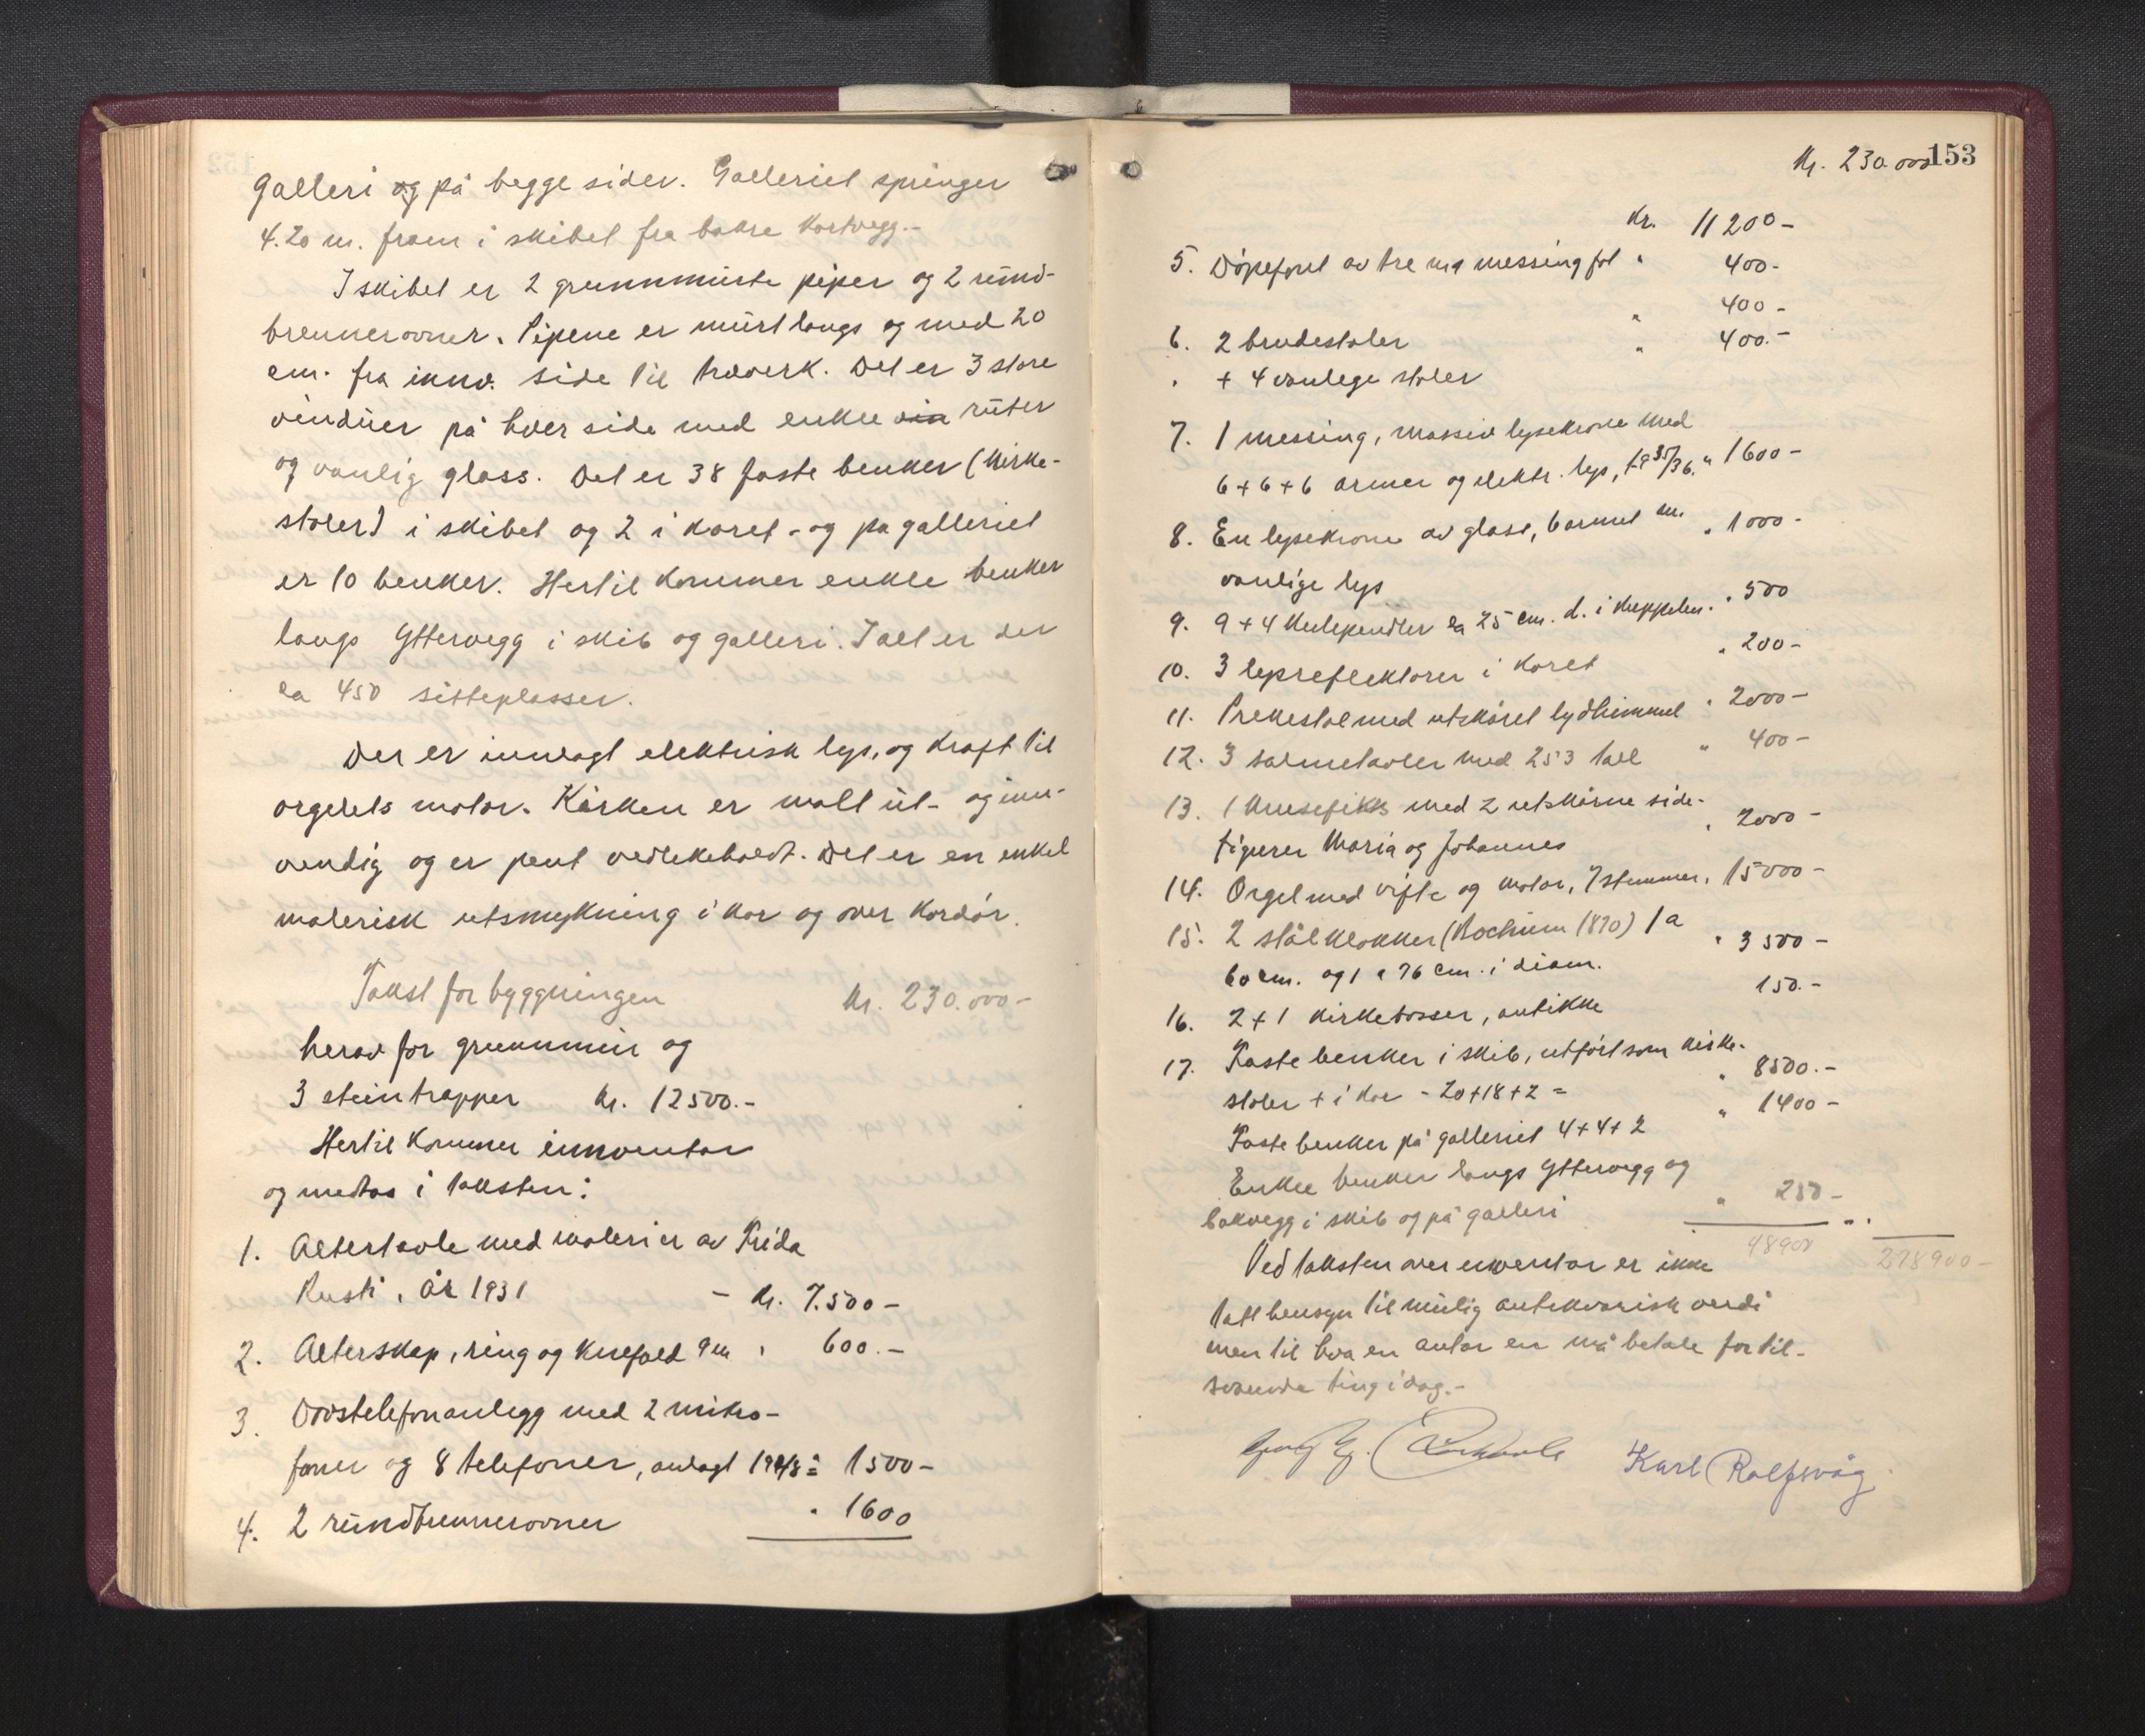 Galleri og på begge sider. Galleriet springer
4.20 m. fram i skibet fra bakre kortvegg.-
I skibet er 2 grunnmurte piper og 2 rund-
brennerovner. Pipene er murt langs og med 20
cm. fra innv. side til treverk. Det er 3 store
vinduer på hver side med enkle ruter
og vanlig glass. Det er 38 faste benker (kirke-
stoler) i skibet og 2 i koret - og på galleriet
er 10 benker. Hertil kommer enkle benker
langs yttervegg i skib og galleri. I alt er der
ca 450 sitteplasser.
Der er innlagt elektrisk lys, og kraft til
orgelets motor. Kirken er malt ut- og inn-
vendig og er pent vedlikeholdt. Det er en enkel
malerisk utsmykning i kor og over kordør.
Takst for byggningen kr. 230.000-
herav for grunnmur og
3 steintrapper kr. 12500.-
Hertil kommer innventar
og medtas i taksten:
1. Altertavle med malerier av Frida
Rusti, år 1931 - kr. 7.500-
2. Alterskap, ring og knefald 9 m " 600.-
3. Døvstelefonanlegg med 2 mikro-
foner og 8 telefoner, anlagt 1500-
4. 2 rundbrennerovner " 1600
153
Kr. 230.000
Kr. 11200-
5. Døpefont av tre m messingfat " 400-
" 400-
6. 2 brudestoler " 400.-
" + 4 vanlege stoler
7. 1 messing, massiv lysekrone med
6+6+6 armer og elektr. lys, fra 35/36. " 1600-
8. En lysekrone av glass, 6 armet m. " 1000-
vanlige lys
9. 9+4 kulependler ca 25 cm. d. i kuppelen. " 500
10. 3 lysreflektorer i koret " 200-
11. Prekestol med utskåret lydhimmel " 2000-
12. 3 salmetavler med 253 tall " 400-
13. 1 krusefiks med 2 utskårne side-
figurer Maria og Johannes " 2000-
14. Orgel med vifte og motor, 7 stemmer, 15000-
15. 2 stålklokker (Bochum 1870) 1 a
60 cm. og 1 a 76 cm. i diam. " 3500-
16. 2+1 kirkebøsser, antikke 150.-
17. Faste benker i skib, utført som kirke-
stoler + i kor - 20+18+2 = " 8500.-
Faste benker på galleriet 4+4+2 " 1400-
Enkle benker langs yttervegg og
bakvegg i skib og på galleri " 250-
48900 278900-
Ved taksten over inventar er ikke
tatt hensyn til mulig antikvarisk verdi
men til hva en antar en må betale for til-
svarende ting i dag.-
Karl Rolfsvåg